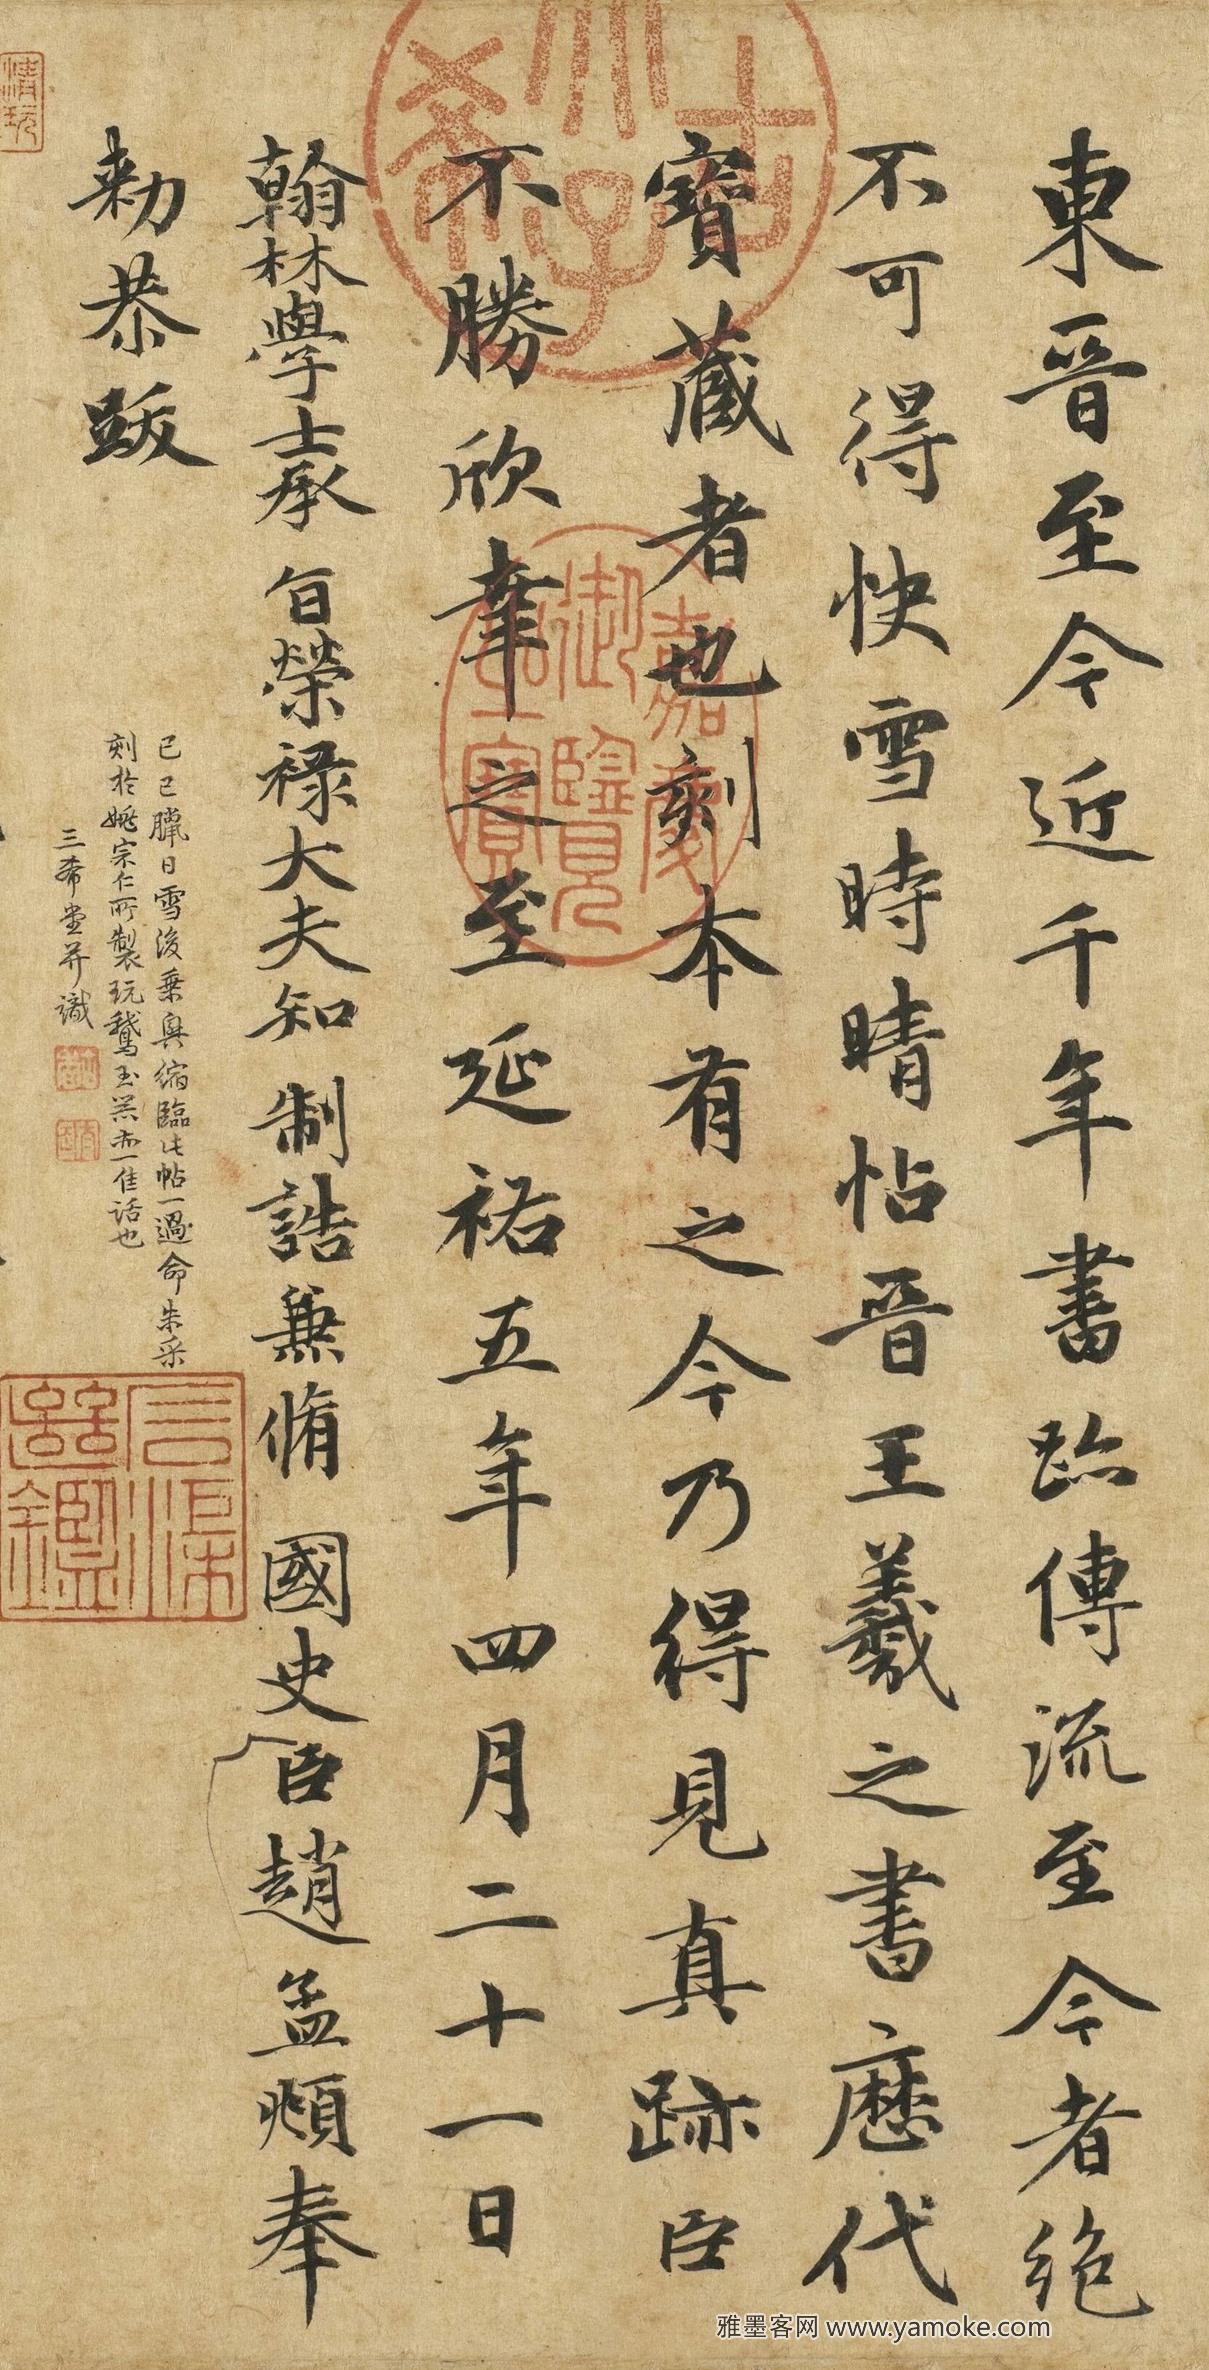 東晉至今近千年書跡傳流至今者絶
不可得快雪時晴帖晉王羲之書歷代
寶藏者也刻本有之今乃得見真跡臣
不勝欣幸之至延祐五年四月二十一日
翰林學士承旨榮祿大夫知制誥兼脩國史臣趙孟頫奉
勑恭跋
己巳臘日雪後乘興縮臨此帖一過命朱采
刻於姚宗仁所製玩鵞玉器亦一佳話也
三希堂并識
嘉慶
御覽
之寶
清玩
雅墨客网 www.yamoke.com